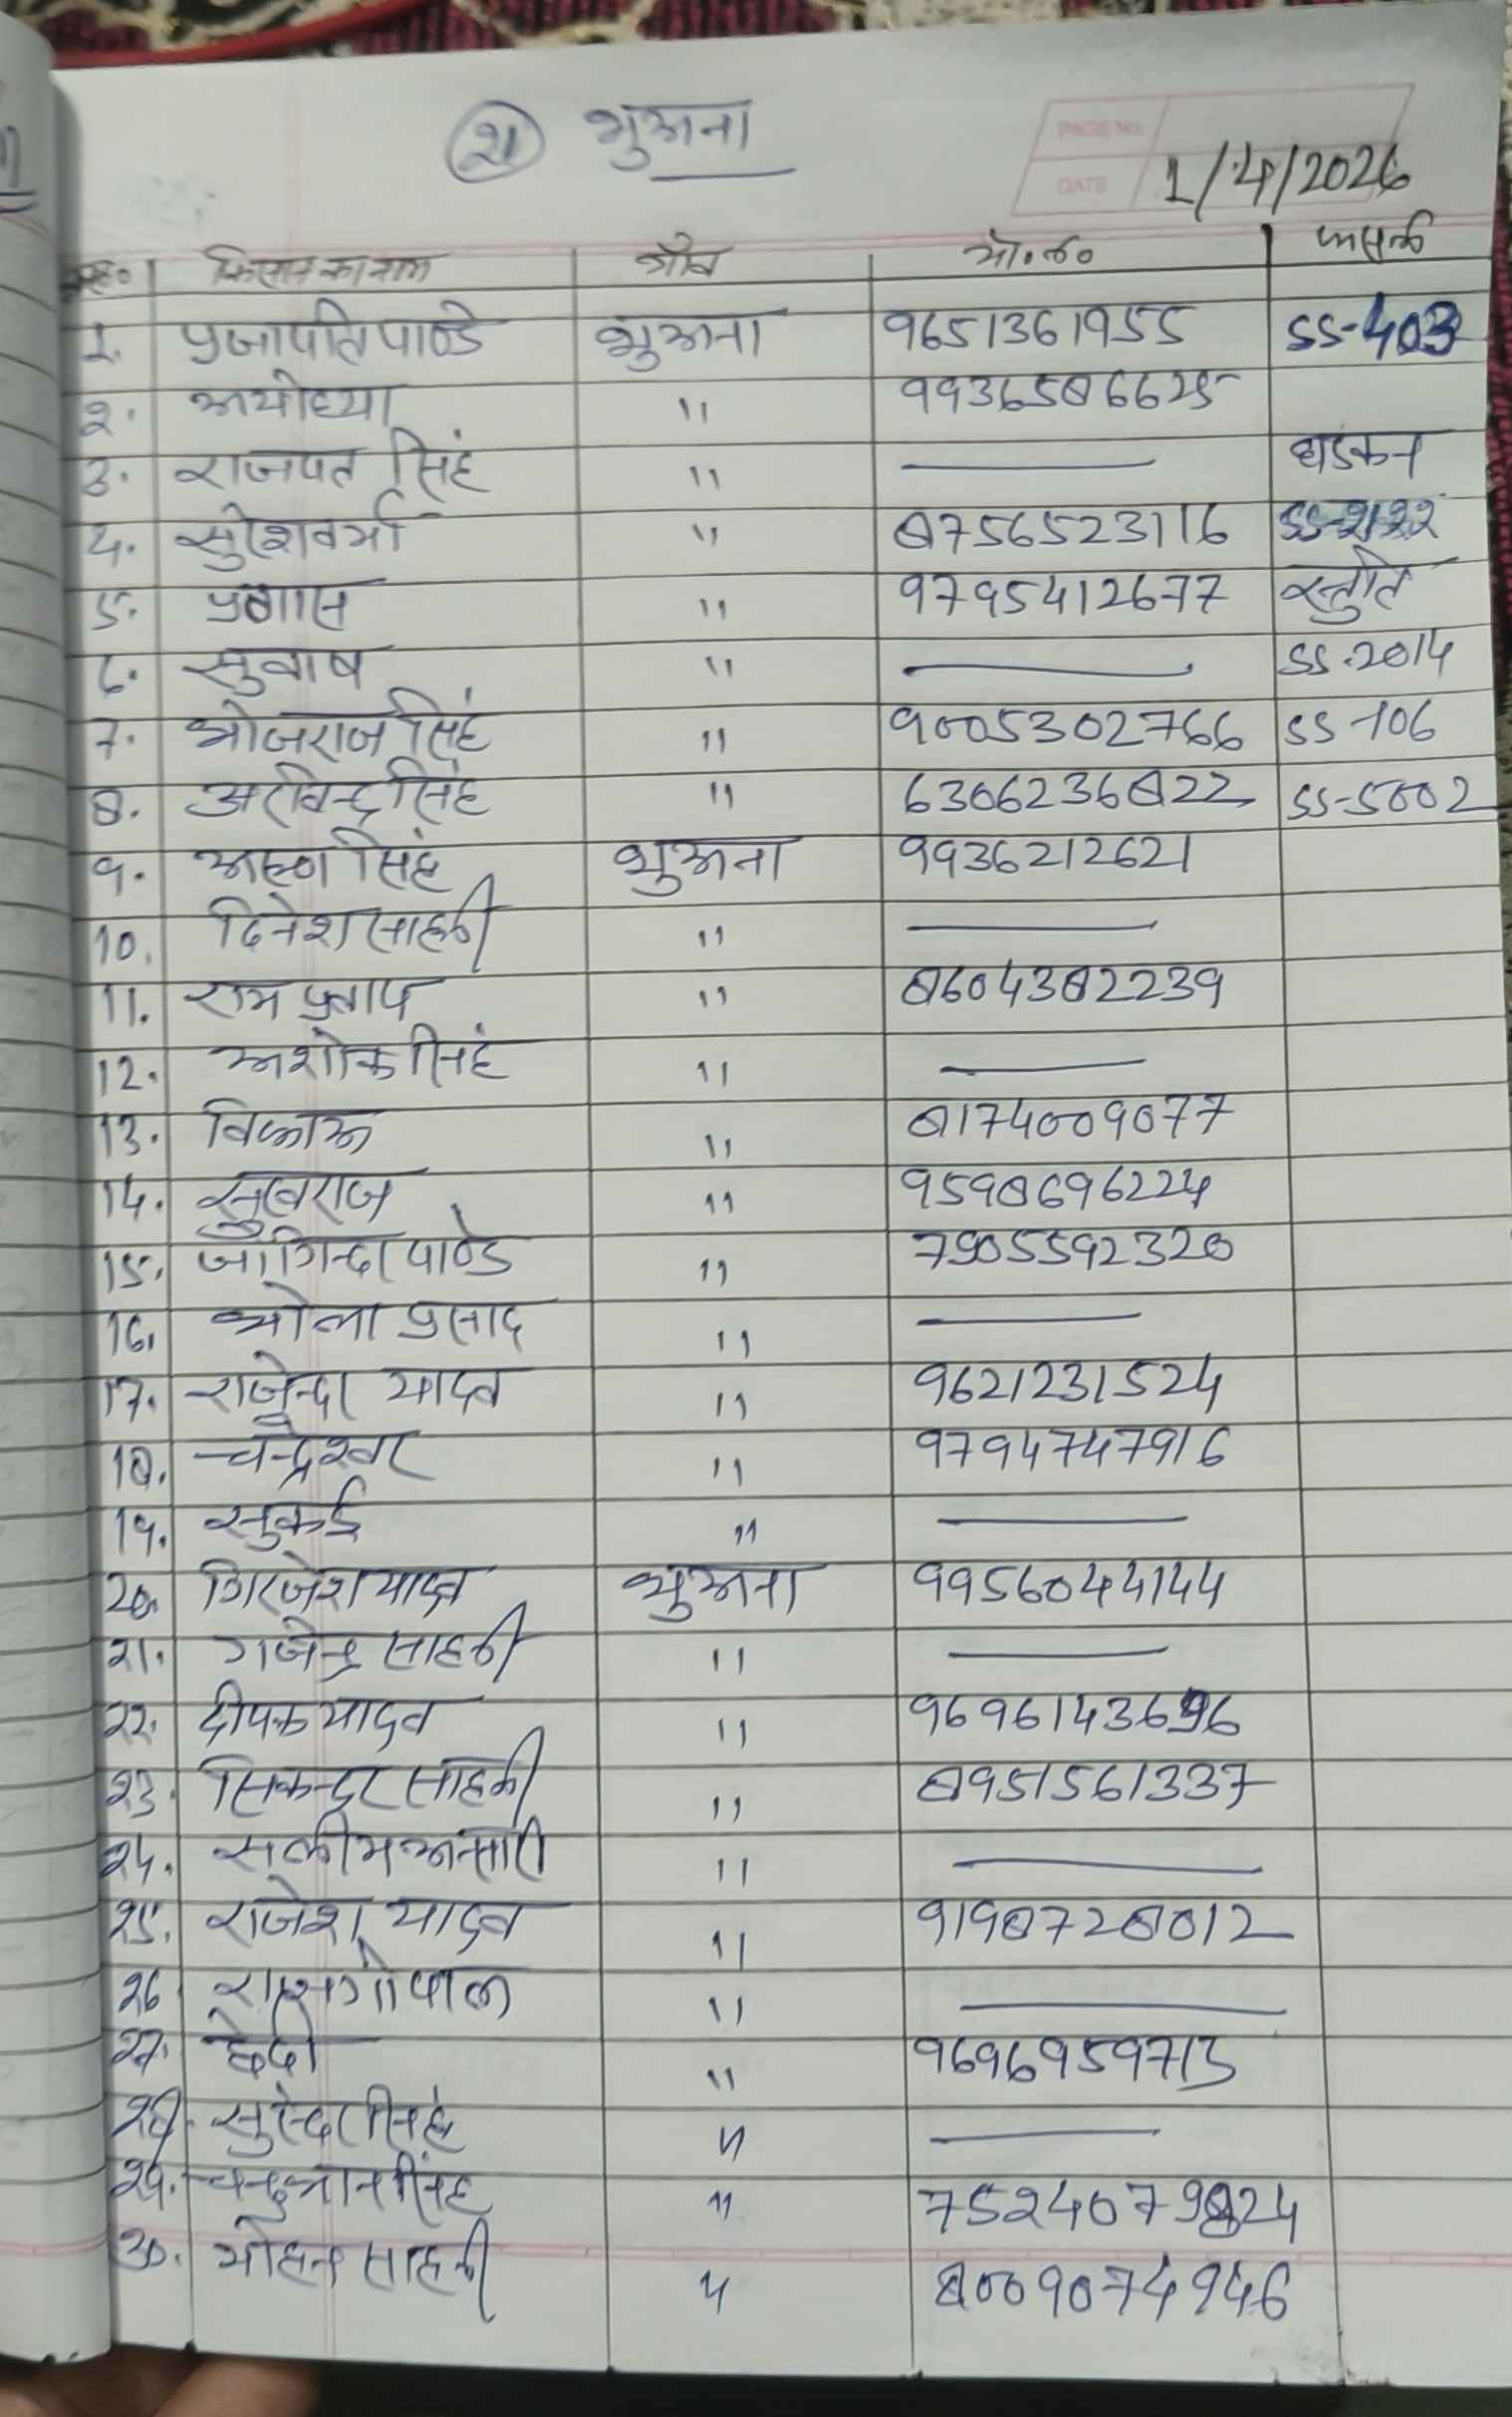 21 भुअना
PAGE NO.
DATE 1/4/2026
किसान का नाम गाँव मो.नं० फसल
1. प्रजापति पाण्डे भुअना 9651361955 SS-403
2. अयोध्या " 9936586625
3. राजपत सिंह " — धडकन
4. सुरेश वर्मा " 8756523116
5. प्रभास " 9795412677 स्तुति
6. सुबाष " — SS-2014
7. भोजराज सिंह " 9005302766 SS-106
8. अरविन्द्र सिंह " 6306236822 SS-5002
9. अरूण सिंह भुअना 9936212621
10. दिनेश साहनी " —
11. राम प्रताप " 8604382239
12. अशोक सिंह " —
13. " 8174009077
14. सुखराज " 9598696224
15. जोगिन्दर पाण्डे " 7905592320
16. भोला प्रसाद " —
17. राजेन्दर यादव " 9621231524
18. चन्द्रेश्वर " 9794747916
19. सुकई " —
20. गिरजेश यादव भुअना 9956044144
21. गजेन्द्र साहनी " —
22. दीपक यादव " 9696143696
23. सिकन्दर साहनी " 8951561337
24. सलीम अन्सारी " —
25. राजेश यादव " 9198728012
26. रामगोपाल " —
27. छेदी " 9696959713
28. सुरेन्दर सिंह " —
29. चन्द्रभान सिंह " 7524079824
30. मोहन साहनी " 8009074946